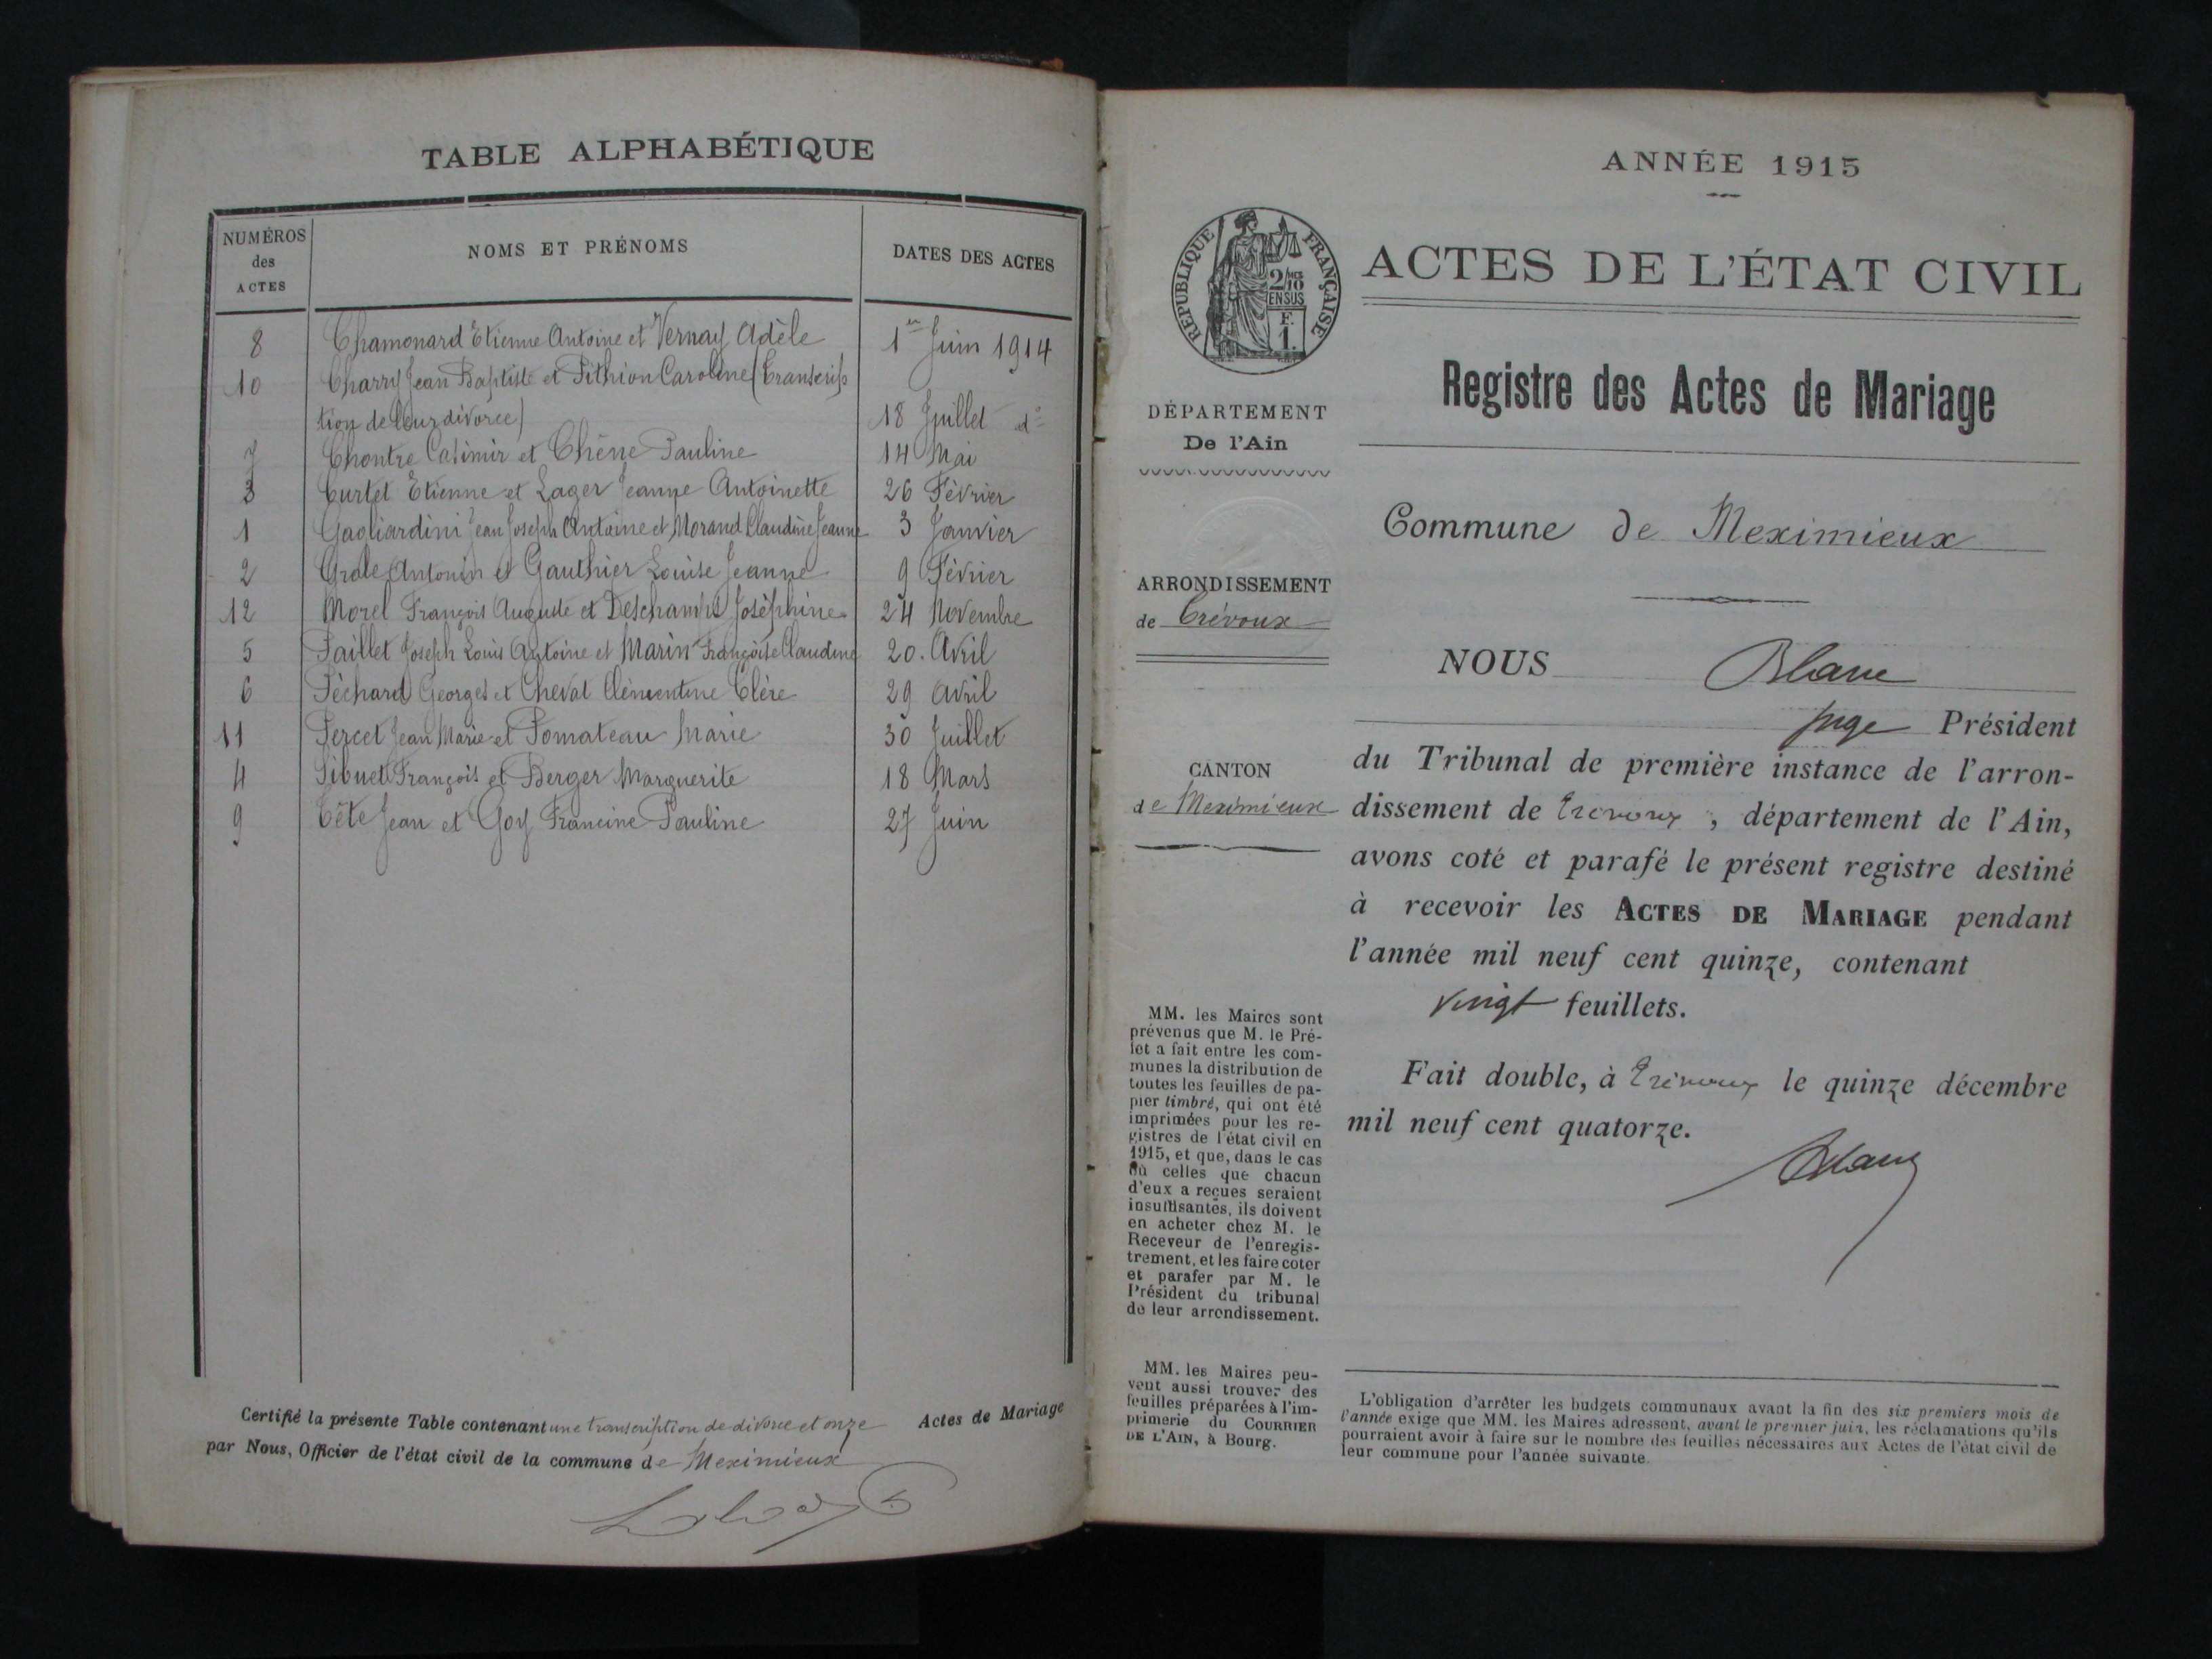 TABLE ALPHABÉTIQUE
NUMÉROS
des
ACTES
NOMS ET PRÉNOMS
DATES DES ACTES
8 Chamonard Etienne Antoine et Vernay Adèle 1er Juin 1914
10 Charry Jean Baptiste et Pithion Caroline (transcrip
tion de leur divorce) 18 Juillet do
7 Chontre Casimir et Chêne Pauline 14 Mai
3 Curtet Etienne et Lager Jeanne Antoinette 26 Février
1 Gagliardini Jean Joseph Antoine et Morand Claudine Jeanne 3 Janvier
2 Antonin et Gauthier Louise Jeanne 9 Février
12 Morel François Auguste et Deschamps Joséphine 24 Novembre
5 Paillet Joseph Louis Antoine et Marin Françoise Claudine 20. Avril
6 Péchard Georges et Chevat Clémentine 29 avril
11 Percet Jean Marie et Pomateau Marie 30 Juillet
4 Sibuet François et Berger Marguerite 18 Mars
9 Tête Jean et Goy Francine Pauline 27 Juin
Certifié la présente Table contenant une transcription de divorce et onze Actes de Mariage
par Nous, Officier de l'état civil de la commune de Meximieux
ANNÉE 1915
RÉPUBLIQUE FRANÇAISE
2/10
EN SUS
F.
1.
ACTES DE L'ÉTAT CIVIL
Registre des Actes de Mariage
DÉPARTEMENT
De l'Ain
Commune de Meximieux
ARRONDISSEMENT
de Trévoux
NOUS Blanc
Juge Président
CANTON
de Meximieux
du Tribunal de première instance de l'arron-
dissement de Trévoux, département de l'Ain,
avons coté et parafé le présent registre destiné
à recevoir les ACTES DE MARIAGE pendant
l'année mil neuf cent quinze, contenant
vingt feuillets.
Fait double, à Trévoux le quinze décembre
mil neuf cent quatorze.
Blanc
MM. les Maires sont
prévenus que M. le Pré-
fet a fait entre les com-
munes la distribution de
toutes les feuilles de pa-
pier timbré, qui ont été
imprimées pour les re-
gistres de l'état civil en
1915, et que, dans le cas
où celles que chacun
d'eux a reçues seraient
insuffisantes, ils doivent
en acheter chez M. le
Receveur de l'enregis-
trement, et les faire coter
et parafer par M. le
Président du tribunal
de leur arrondissement.
MM. les Maires peu-
vent aussi trouver des
feuilles préparées à l'im-
primerie du COURRIER
DE L'AIN, à Bourg.
L'obligation d'arrêter les budgets communaux avant la fin des six premiers mois de
l'année exige que MM. les Maires adressent, avant le premier juin, les réclamations qu'ils
pourraient avoir à faire sur le nombre des feuilles nécessaires aux Actes de l'état civil de
leur commune pour l'année suivante.